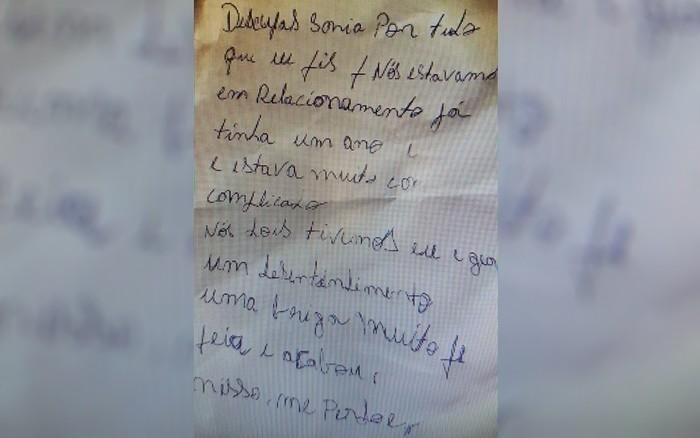 Desculpas Sonia Por tudo
que eu fis Nós estavamos
em Relacionamento já
tinha um ano e
e estava muito com
complicado
Nós dois tivemos eu e
um desentendimento
uma briga muito fe
feia e acabou
nisso. me Perdoe,